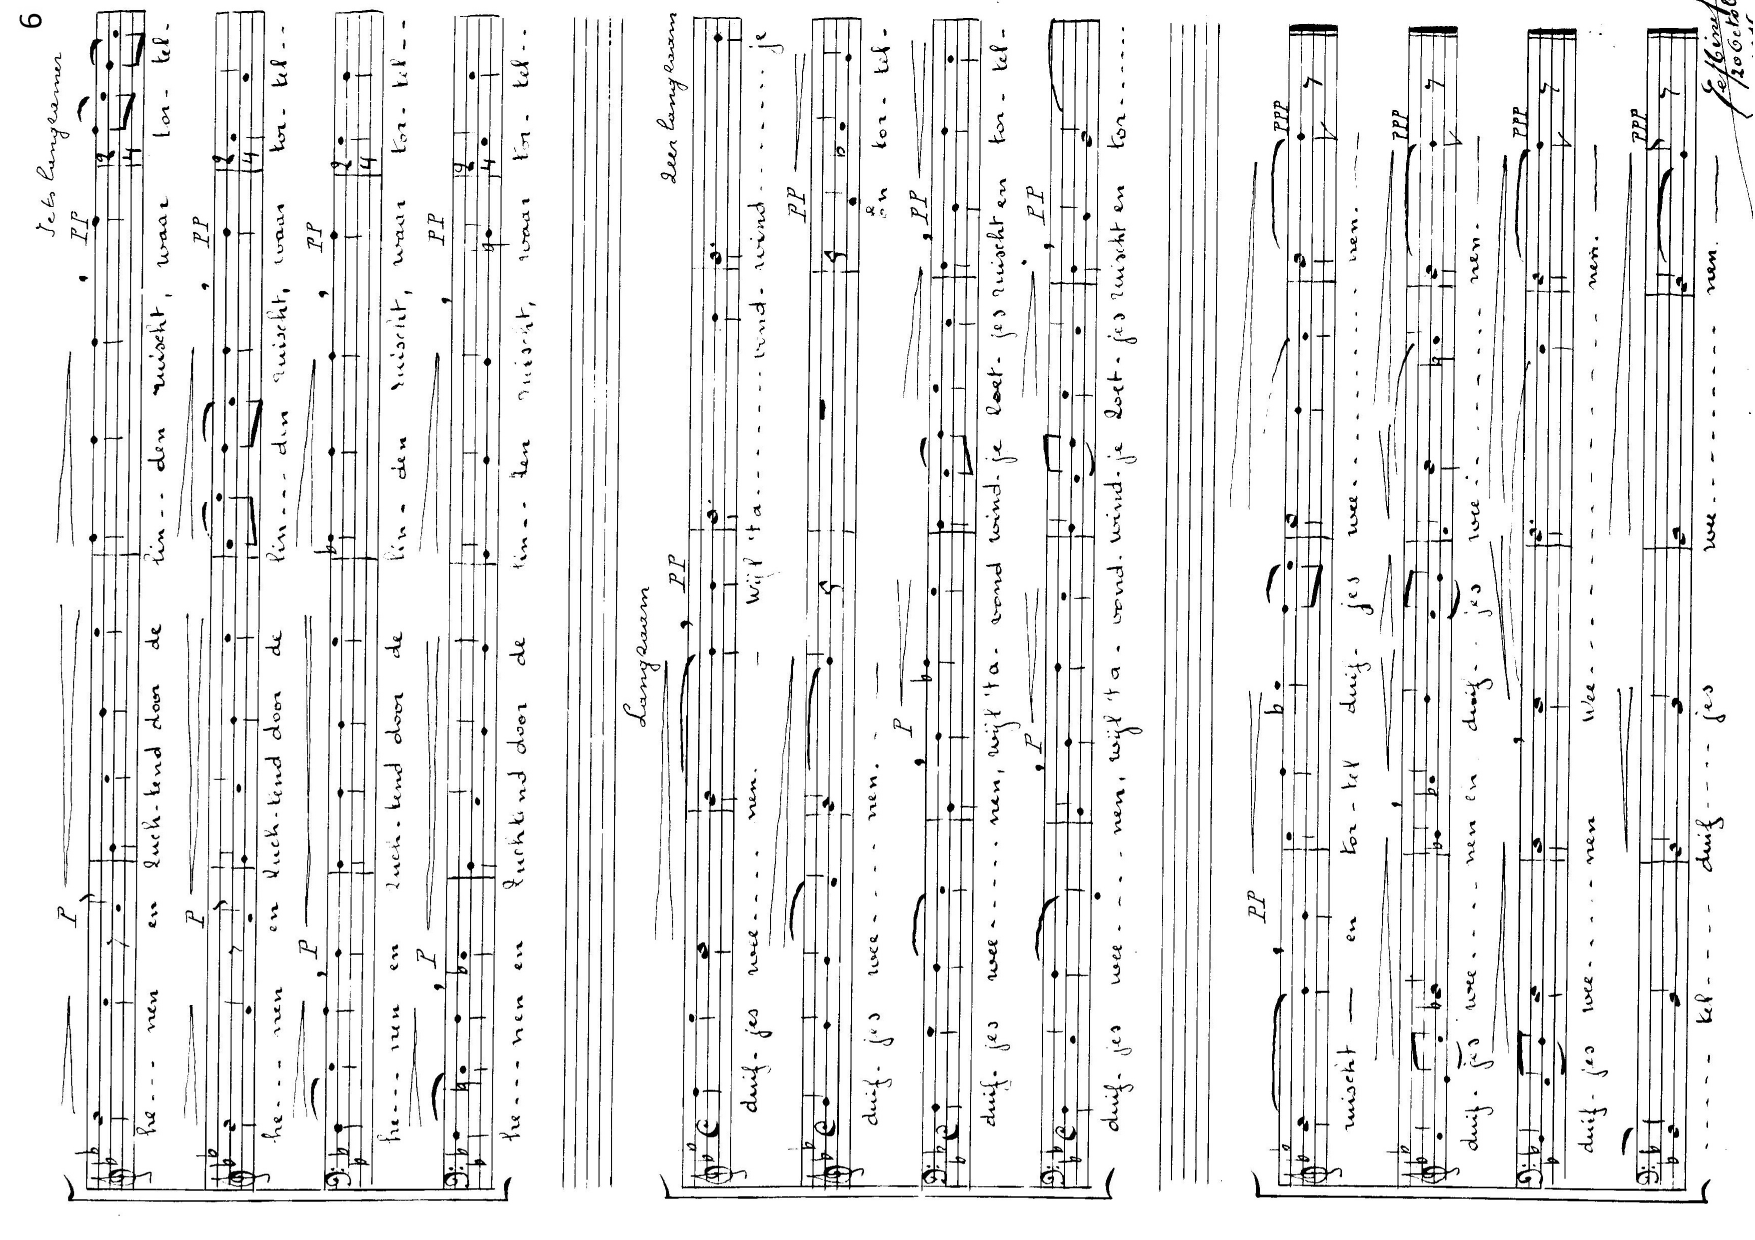 6
Iets langzamer
P PP
he - - - nen en zuch-tend door de lin - - den ruischt, waar tor - tel -
P PP
he - - - nen en zuch-tend door de lin - - - den ruischt, waar tor - tel - -
P PP
he - - - nen en zuch-tend door de lin - den ruischt, waar tor - tel - -
P PP
he - - - nen en zuchtend door de lin - - den ruischt, waar tor - tel - -
Langzaam
zeer langzaam
PP
duif - jes wee - - - - nen. — Wijl 'ta - - - - - - - - vond - wind - - - - - - - je
PP
duif - jes wee - - - - - nen. - — en tor - tel -
P PP
duif - jes wee - - - - - nen, wijl 'ta - vond wind - je zoet - jes ruischt en tor - tel -
P PP
duif - jes wee - - - - nen, wijl 'ta - vond - wind - je zoet - jes ruischt en tor - - - - -
PP PPP
ruischt — en tor - tel duif - jes wee - - - - - - - - nen. —
PPP
duif - jes wee - - - - - nen en duif - jes wee - - - - - - - - nen. —
PPP
duif - jes wee - - - - - nen wee - - - - - - - - - - - nen. —
PPP
- - - - - tel - - - - duif - - - - jes wee - - - - - - - - - nen. —